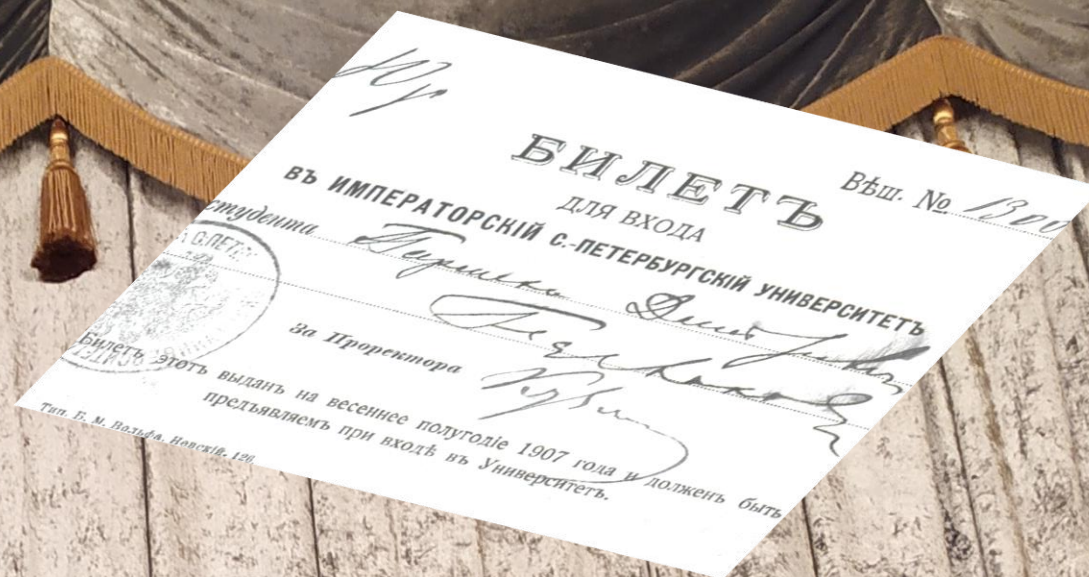 Юр
БИЛЕТЪ
Вѣш. № 1300
ДЛЯ ВХОДА
ВЪ ИМПЕРАТОРСКІЙ С.-ПЕТЕРБУРГСКІЙ УНИВЕРСИТЕТЪ
студента
За Проректора
Билетъ этотъ выданъ на весеннее полугодіе 1907 года и долженъ быть
предъявляемъ при входѣ въ Университетъ.
Тип. Б. М. Вольфа, Невскій, 126